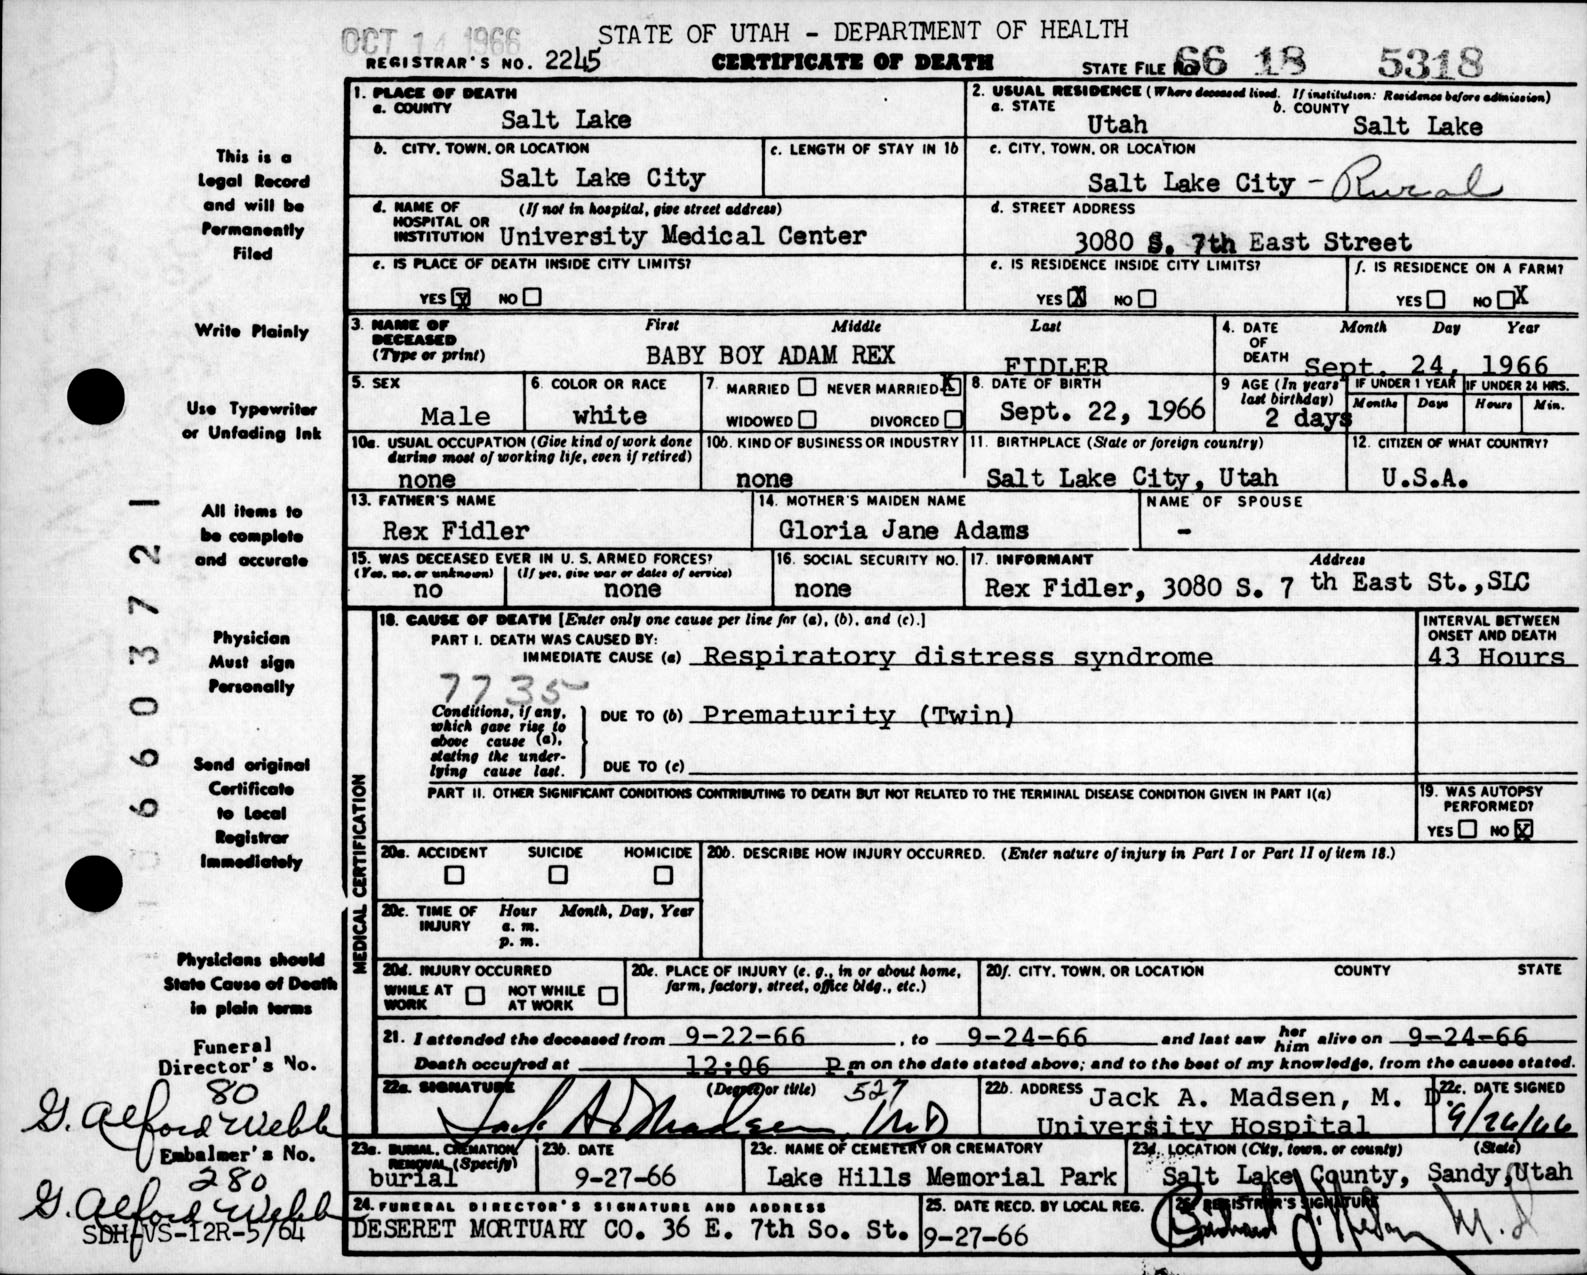 OCT 14 1966
STATE OF UTAH – DEPARTMENT OF HEALTH
REGISTRAR'S NO. 2245
CERTIFICATE OF DEATH
STATE FILE NO. 66 18 5318
This is a
Legal Record
and will be
Permanently
Filed
Write Plainly
Use Typewriter
or Unfading Ink
All items to
be complete
and accurate
Physician
Must sign
Personally
Send original
Certificate
to Local
Registrar
Immediately
Physicians should
State Cause of Death
in plain terms
Funeral
Director's No.
80
G. Alford Webb
Embalmer's No.
280
G. Alford Webb
SDH-VS-12R-5/64
6603721
1. PLACE OF DEATH
a. COUNTY
Salt Lake
2. USUAL RESIDENCE (Where deceased lived. If institution: Residence before admission)
a. STATE b. COUNTY
Utah Salt Lake
b. CITY, TOWN, OR LOCATION
Salt Lake City
c. LENGTH OF STAY IN 1b
c. CITY, TOWN, OR LOCATION
Salt Lake City - Rural
d. NAME OF (If not in hospital, give street address)
HOSPITAL OR
INSTITUTION University Medical Center
d. STREET ADDRESS
3080 S. 7th East Street
e. IS PLACE OF DEATH INSIDE CITY LIMITS?
YES X NO
e. IS RESIDENCE INSIDE CITY LIMITS?
YES X NO
f. IS RESIDENCE ON A FARM?
YES NO X
3. NAME OF First Middle Last
DECEASED
(Type or print) BABY BOY ADAM REX FIDLER
4. DATE Month Day Year
OF
DEATH Sept. 24, 1966
5. SEX
Male
6. COLOR OR RACE
white
7. MARRIED NEVER MARRIED X
WIDOWED DIVORCED
8. DATE OF BIRTH
Sept. 22, 1966
9 AGE (In years
last birthday)
2 days
IF UNDER 1 YEAR
Months Days
IF UNDER 24 HRS.
Hours Min.
10a. USUAL OCCUPATION (Give kind of work done
during most of working life, even if retired)
none
10b. KIND OF BUSINESS OR INDUSTRY
none
11. BIRTHPLACE (State or foreign country)
Salt Lake City, Utah
12. CITIZEN OF WHAT COUNTRY?
U.S.A.
13. FATHER'S NAME
Rex Fidler
14. MOTHER'S MAIDEN NAME
Gloria Jane Adams
NAME OF SPOUSE
-
15. WAS DECEASED EVER IN U. S. ARMED FORCES?
(Yes, no, or unknown) (If yes, give war or dates of service)
no none
16. SOCIAL SECURITY NO.
none
17. INFORMANT Address
Rex Fidler, 3080 S. 7 th East St., SLC
MEDICAL CERTIFICATION
18. CAUSE OF DEATH [Enter only one cause per line for (a), (b), and (c).]
PART I. DEATH WAS CAUSED BY:
IMMEDIATE CAUSE (a) Respiratory distress syndrome
INTERVAL BETWEEN
ONSET AND DEATH
43 Hours
7735
Conditions, if any,
which gave rise to
above cause (a),
stating the under-
lying cause last.
DUE TO (b) Prematurity (Twin)
DUE TO (c)
PART II. OTHER SIGNIFICANT CONDITIONS CONTRIBUTING TO DEATH BUT NOT RELATED TO THE TERMINAL DISEASE CONDITION GIVEN IN PART I(a)
19. WAS AUTOPSY
PERFORMED?
YES NO X
20a. ACCIDENT SUICIDE HOMICIDE
20b. DESCRIBE HOW INJURY OCCURRED. (Enter nature of injury in Part I or Part II of item 18.)
20c. TIME OF Hour Month, Day, Year
INJURY a. m.
p. m.
20d. INJURY OCCURRED
WHILE AT NOT WHILE
WORK AT WORK
20e. PLACE OF INJURY (e. g., in or about home,
farm, factory, street, office bldg., etc.)
20f. CITY, TOWN, OR LOCATION COUNTY STATE
21. I attended the deceased from 9-22-66, to 9-24-66 and last saw her him alive on 9-24-66
Death occurred at 12:06 P.m on the date stated above; and to the best of my knowledge, from the causes stated.
22a. SIGNATURE (Degree or title) 527
Jack A. Madsen MD
22b. ADDRESS Jack A. Madsen, M. D.
University Hospital
22c. DATE SIGNED
9/26/66
23a. BURIAL, CREMATION,
REMOVAL (Specify)
burial
23b. DATE
9-27-66
23c. NAME OF CEMETERY OR CREMATORY
Lake Hills Memorial Park
23d. LOCATION (City, town, or county) (State)
Salt Lake County, Sandy, Utah
24. FUNERAL DIRECTOR'S SIGNATURE AND ADDRESS
DESERET MORTUARY CO. 36 E. 7th So. St.
25. DATE RECD. BY LOCAL REG.
9-27-66
26. REGISTRAR'S SIGNATURE
M.D